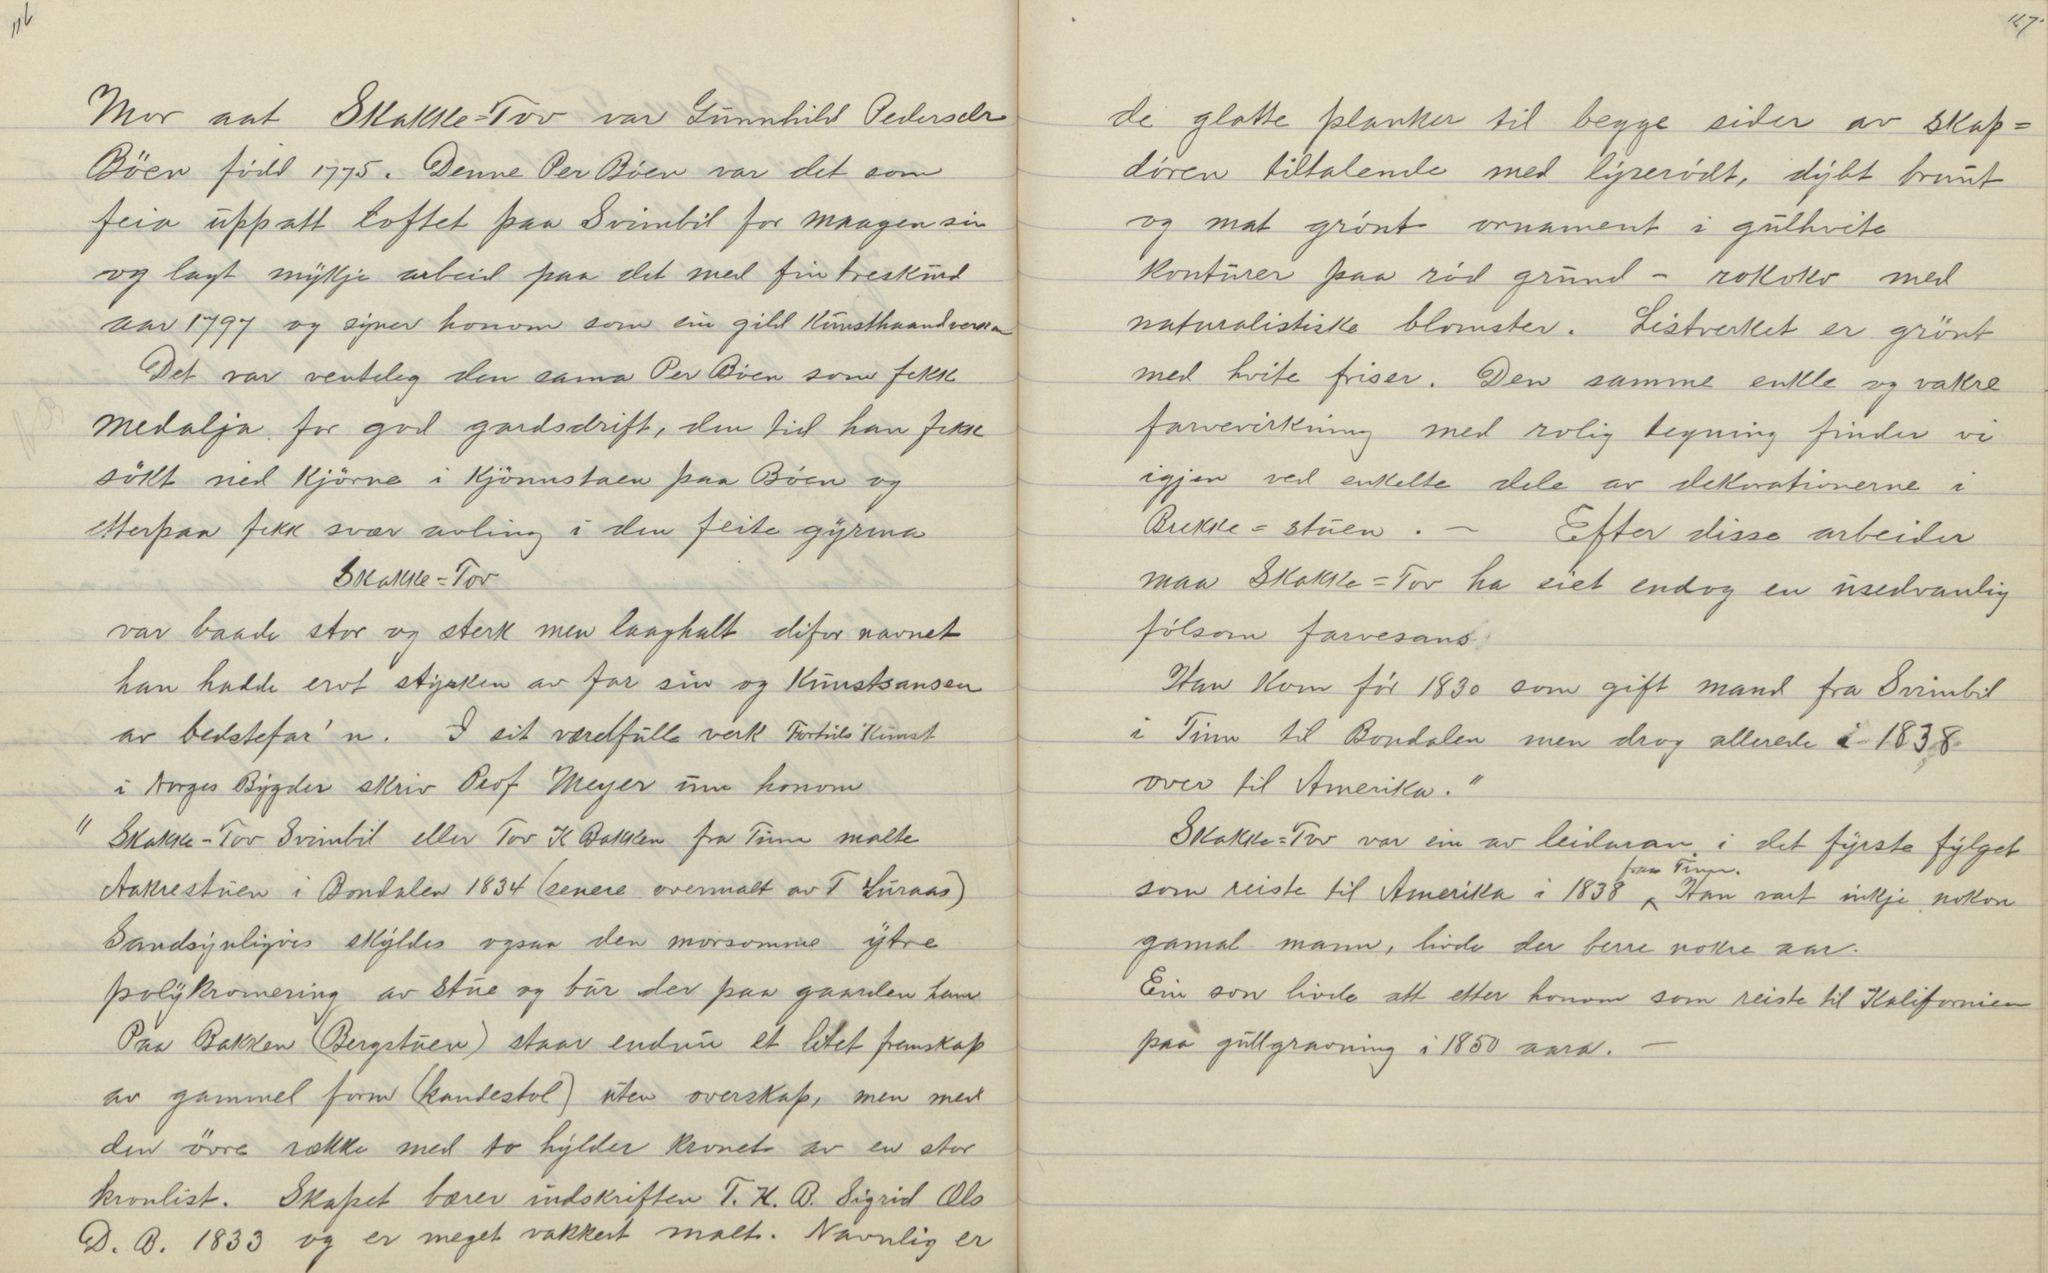 116
Mor aat Skakke=Tov var Gunnhild Pedersdr
Böen född 1775. Denne Per Böen var det som
feia uppatt loftet paa Svimbil for maagen sin
og lagt mykje arbeid paa det med fin treskurd
aar 1797 og syner honom som ein gild Kunsthaandverkar
Det var venteleg den sama Per Böen som fekk
medalja for god gardsdrift, den tid han fekk
sökt ned Kjörne i Kjönnstaen paa Böen og
etterpaa fekk svær avling i den feite gyrma
Skakke=Tov
var baade stor og sterk men laaghalt difor navnet
han hadde ervt styrken av far sin og Kunstsansen
av bedstefar'n. I sit værdfulle verk Fortids Kunst
i Norges Bygder skriv Prof Meyer um honom
" Skakke-Tov Svimbil eller Tov K Bakken fra Tinn malte
Aakrestuen i Bondalen 1834 (senere overmalt av T Luraas)
Sandsynligvis skyldes ogsaa den morsomme ytre
polykromering av stue og bur der paa gaarden ham
Paa Bakken (Bergstuen) staar endnu et litet fremskap
av gammel form (kandestol) uten overskap, men med
den övre række med to hylder kronet av en stor
kronlist. Skapet bærer indskriften T. K. B. Sigrid Ols
D. B. 1833 og er meget vakkert malt. Navnlig er
117.
de glatte planker til begge sider av skap=
dören tiltalende med lyserödt, dybt brunt
og mat grönt ornament i gulhvite
Konturer paa röd grund - rokoko med
naturalistiske blomster. Listverket er grönt
med hvite friser. Den samme enkle og vakre
farvevirkning med rolig tegning finder vi
igjen ved enkelte dele av dekorationerne i
Brekke=stuen. - Efter disse arbeider
maa Skakke=Tov ha eiet endog en usedvanlig
fölsom farvesans
Han Kom för 1830 som gift mand fra Svimbil
i Tinn til Bondalen men drog allerede i 1838
over til Amerika."
Skakke=Tov var ein av leidaran i det fyrste fylget
som reiste til Amerika i 1838 fraa Tinn. Han vart inkje nokon
gamal mann, livde der berre nokre aar.
Ein son livde att etter honom som reiste til Kalifornien
paa gullgravning i 1850 aara. -